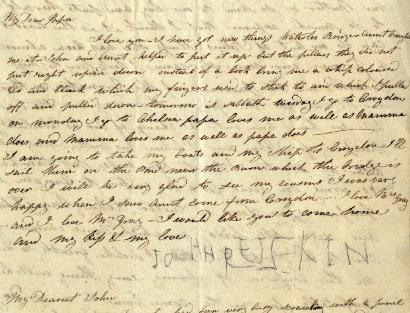 My Dear Papa
I love you - I have got new things Waterloo Bridge Aunt brought
me it - John and Aunt helped to put it up but the pillars they did not
put right upside down instead of a book bring me a whip coloured
red and black which my fingers used to stick to and which I pulled
off and pulled down - tomorrow is sabbath tuesday I go to Croydon
on monday I go to Chelsea papa loves me as well as Mamma
does and Mamma loves me as well as papa does
I am going to take my boats and my ship to Croydon I'll
sail them in the Pond near the Burn which the bridge is
over I will be very glad to see my cousins I was very
happy when I saw Aunt come from Croydon - I love Mrs Gray
and I love Mr Gray - I would like you to come home
and my kiss & my love
My Dearest John